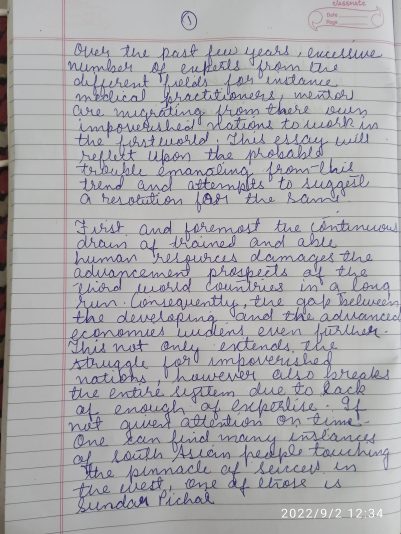 classmate
Date
Page
1
Over the past few years, excessive
number of experts from the
different fields for instance
medical practitioners, mentor
are migrating from there own
impoverished nations to work in
the first world. This essay will
reflect upon the probable
trouble emanating from this
trend and attempts to suggest
a resolution for the same.
First and foremost the continuous
drain of trained and able
human resources damages the
advancement prospects of the
third world countries in a long
run. Consequently, the gap between
the developing and the advanced
economies widens even further.
This not only extends the
struggle for impoverished
nations, however also breaks
the entire system due to lack
of enough of expertise. If
not given attention on time.
One can find many instances
of south Asian people touching
the pinnacle of success in
the west, one of those is
Sundar Pichai
2022/9/2 12:34